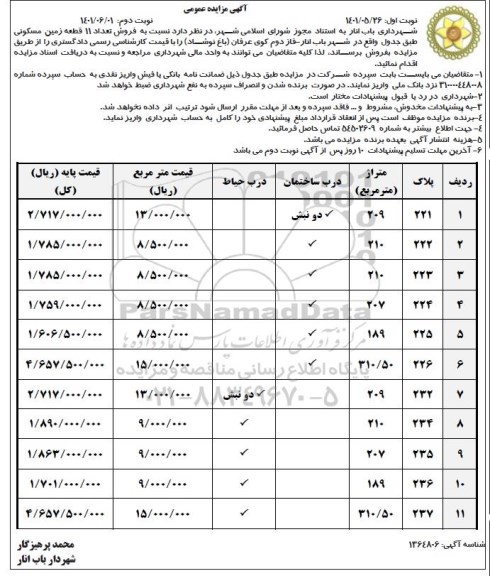 آگهی مزایده عمومی
نوبت اول: ۱۴۰۱/۰۵/۲۶ نوبت دوم: ۱۴۰۱/۰۶/۰۱
شهرداری باب انار به استناد مجوز شورای اسلامی شهر، در نظر دارد نسبت به فروش تعداد ۱۱ قطعه زمین مسکونی
طبق جدول واقع در شهر باب انار-فاز دوم کوی عرفان (باغ نوشاد) را با قیمت کارشناسی رسمی دادگستری را از طریق
مزایده بفروش برساند. لذا کلیه متقاضیان می توانند به واحد مالی شهرداری مراجعه و نسبت به دریافت اسناد مزایده
اقدام نمائید.
۱- متقاضیان می بایست بابت سپرده شرکت در مزایده طبق جدول ذیل ضمانت نامه بانکی یا فیش واریز نقدی به حساب سپرده شماره
۳۱۰۰۰۰۴۴۸۰۰۸ نزد بانک ملی واریز نمایند. در صورت برنده شدن و انصراف سپرده به نفع شهرداری ضبط خواهد شد
۲-شهرداری در رد یا قبول پیشنهادات مختار است.
۳-به پیشنهادات مخدوش، مشروط و ... فاقد سپرده و بعد از مهلت مقرر ارسال شود ترتیب اثر داده نخواهد شد.
۴-برنده مزایده موظف است پس از انعقاد قرارداد مبلغ پیشنهادی خود را کامل به حساب شهرداری واریز نماید.
۴-جهت اطلاع بیشتر به شماره ۵۴۵۰۲۶۰۹ تماس حاصل فرمائید.
۵-هزینه انتشار آگهی بعهده برنده مزایده می باشد.
۶- آخرین مهلت تسلیم پیشنهادات ۱۰ روز پس از آگهی نوبت دوم می باشد
ردیف پلاک متراژ (مترمربع) درب ساختمان درب حیاط قیمت متر مربع (ریال) قیمت پایه (ریال) (کل)
۱ ۲۲۱ ۲۰۹ ✓ دو نبش ۱۳/۰۰۰/۰۰۰ ۲/۷۱۷/۰۰۰/۰۰۰
۲ ۲۲۲ ۲۱۰ ✓ ۸/۵۰۰/۰۰۰ ۱/۷۸۵/۰۰۰/۰۰۰
۳ ۲۲۳ ۲۱۰ ✓ ۸/۵۰۰/۰۰۰ ۱/۷۸۵/۰۰۰/۰۰۰
۴ ۲۲۴ ۲۰۷ ✓ ۸/۵۰۰/۰۰۰ ۱/۷۵۹/۰۰۰/۰۰۰
۵ ۲۲۵ ۱۸۹ ✓ ۸/۵۰۰/۰۰۰ ۱/۶۰۶/۵۰۰/۰۰۰
۶ ۲۲۶ ۳۱۰/۵۰ ✓ ۱۵/۰۰۰/۰۰۰ ۴/۶۵۷/۵۰۰/۰۰۰
۷ ۲۳۲ ۲۰۹ ✓ دو نبش ۱۳/۰۰۰/۰۰۰ ۲/۷۱۷/۰۰۰/۰۰۰
۸ ۲۳۴ ۲۱۰ ✓ ۹/۰۰۰/۰۰۰ ۱/۸۹۰/۰۰۰/۰۰۰
۹ ۲۳۵ ۲۰۷ ✓ ۹/۰۰۰/۰۰۰ ۱/۸۶۳/۰۰۰/۰۰۰
۱۰ ۲۳۶ ۱۸۹ ✓ ۹/۰۰۰/۰۰۰ ۱/۷۰۱/۰۰۰/۰۰۰
۱۱ ۲۳۷ ۳۱۰/۵۰ ✓ ۱۵/۰۰۰/۰۰۰ ۴/۶۵۷/۵۰۰/۰۰۰
ParsNamadData
مرکز فرآوری اطلاعات پارس نماد داده ها
پایگاه اطلاع رسانی مناقصه و مزایده
۰۲۱-۸۸۳۴۹۶۷۰-۵
شناسه آگهی: ۱۳۶۴۸۰۶
محمد پرهیزگار
شهردار باب انار